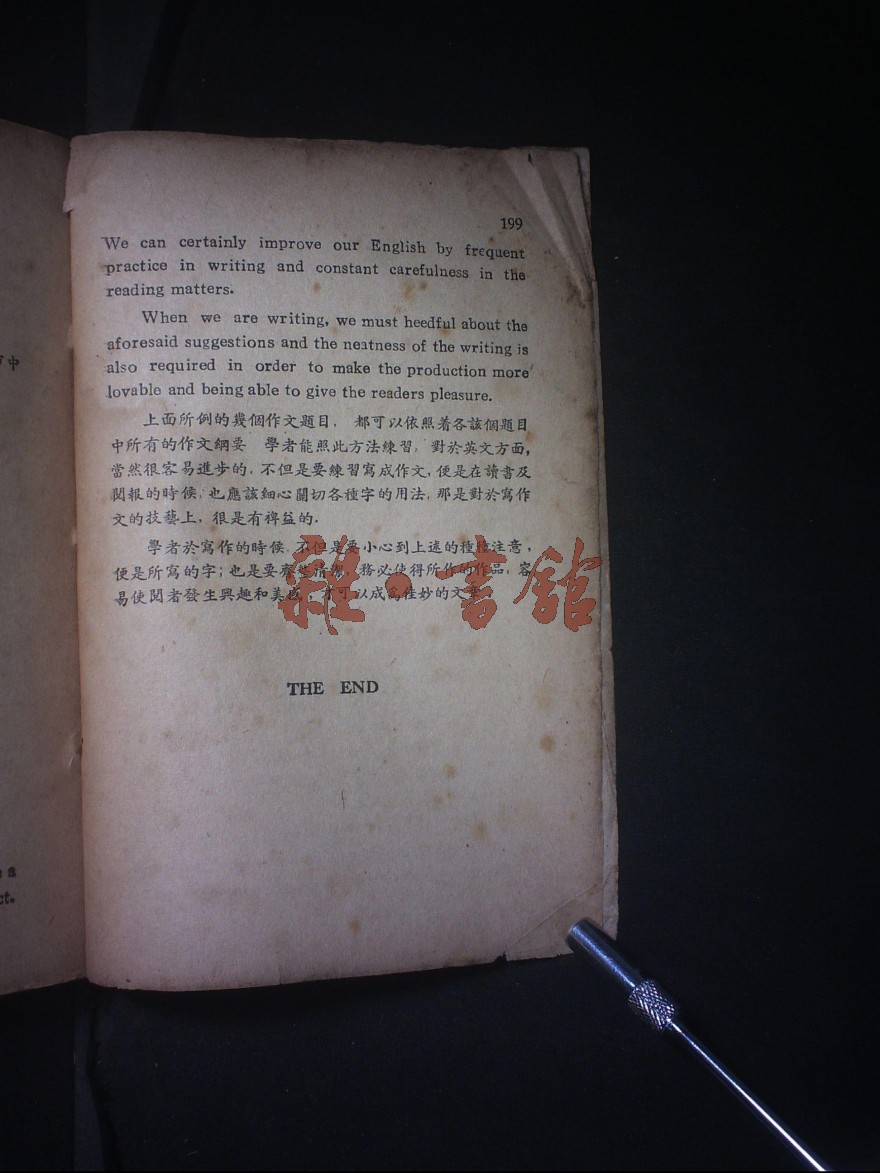 199
We can certainly improve our English by frequent
practice in writing and constant carefulness in the
reading matters.
When we are writing, we must heedful about the
aforesaid suggestions and the neatness of the writing is
also required in order to make the production more
lovable and being able to give the readers pleasure.
上面所例的幾個作文題目, 都可以依照着各該個題目
中所有的作文綱要 學者能照此方法練習, 對於英文方面,
當然很容易進步的, 不但是要練習寫成作文, 便是在讀書及
閱報的時候, 也應該細心關切各種字的用法, 那是對於寫作
文的技藝上, 很是有裨益的.
學者於寫作的時候, 不但是要小心到上述的種種注意,
便是所寫的字; 也是要齊 , 務必使得所作的作品, 容
易使閱者發生興趣和美感, 才可以成爲佳妙的文
THE END
中
a
ct.
雜·書館